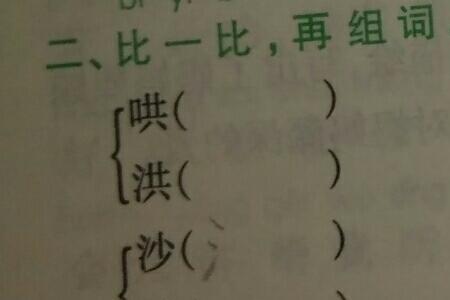 二、比一比，再组词
哄(　　)
洪(　　)
沙(　　)